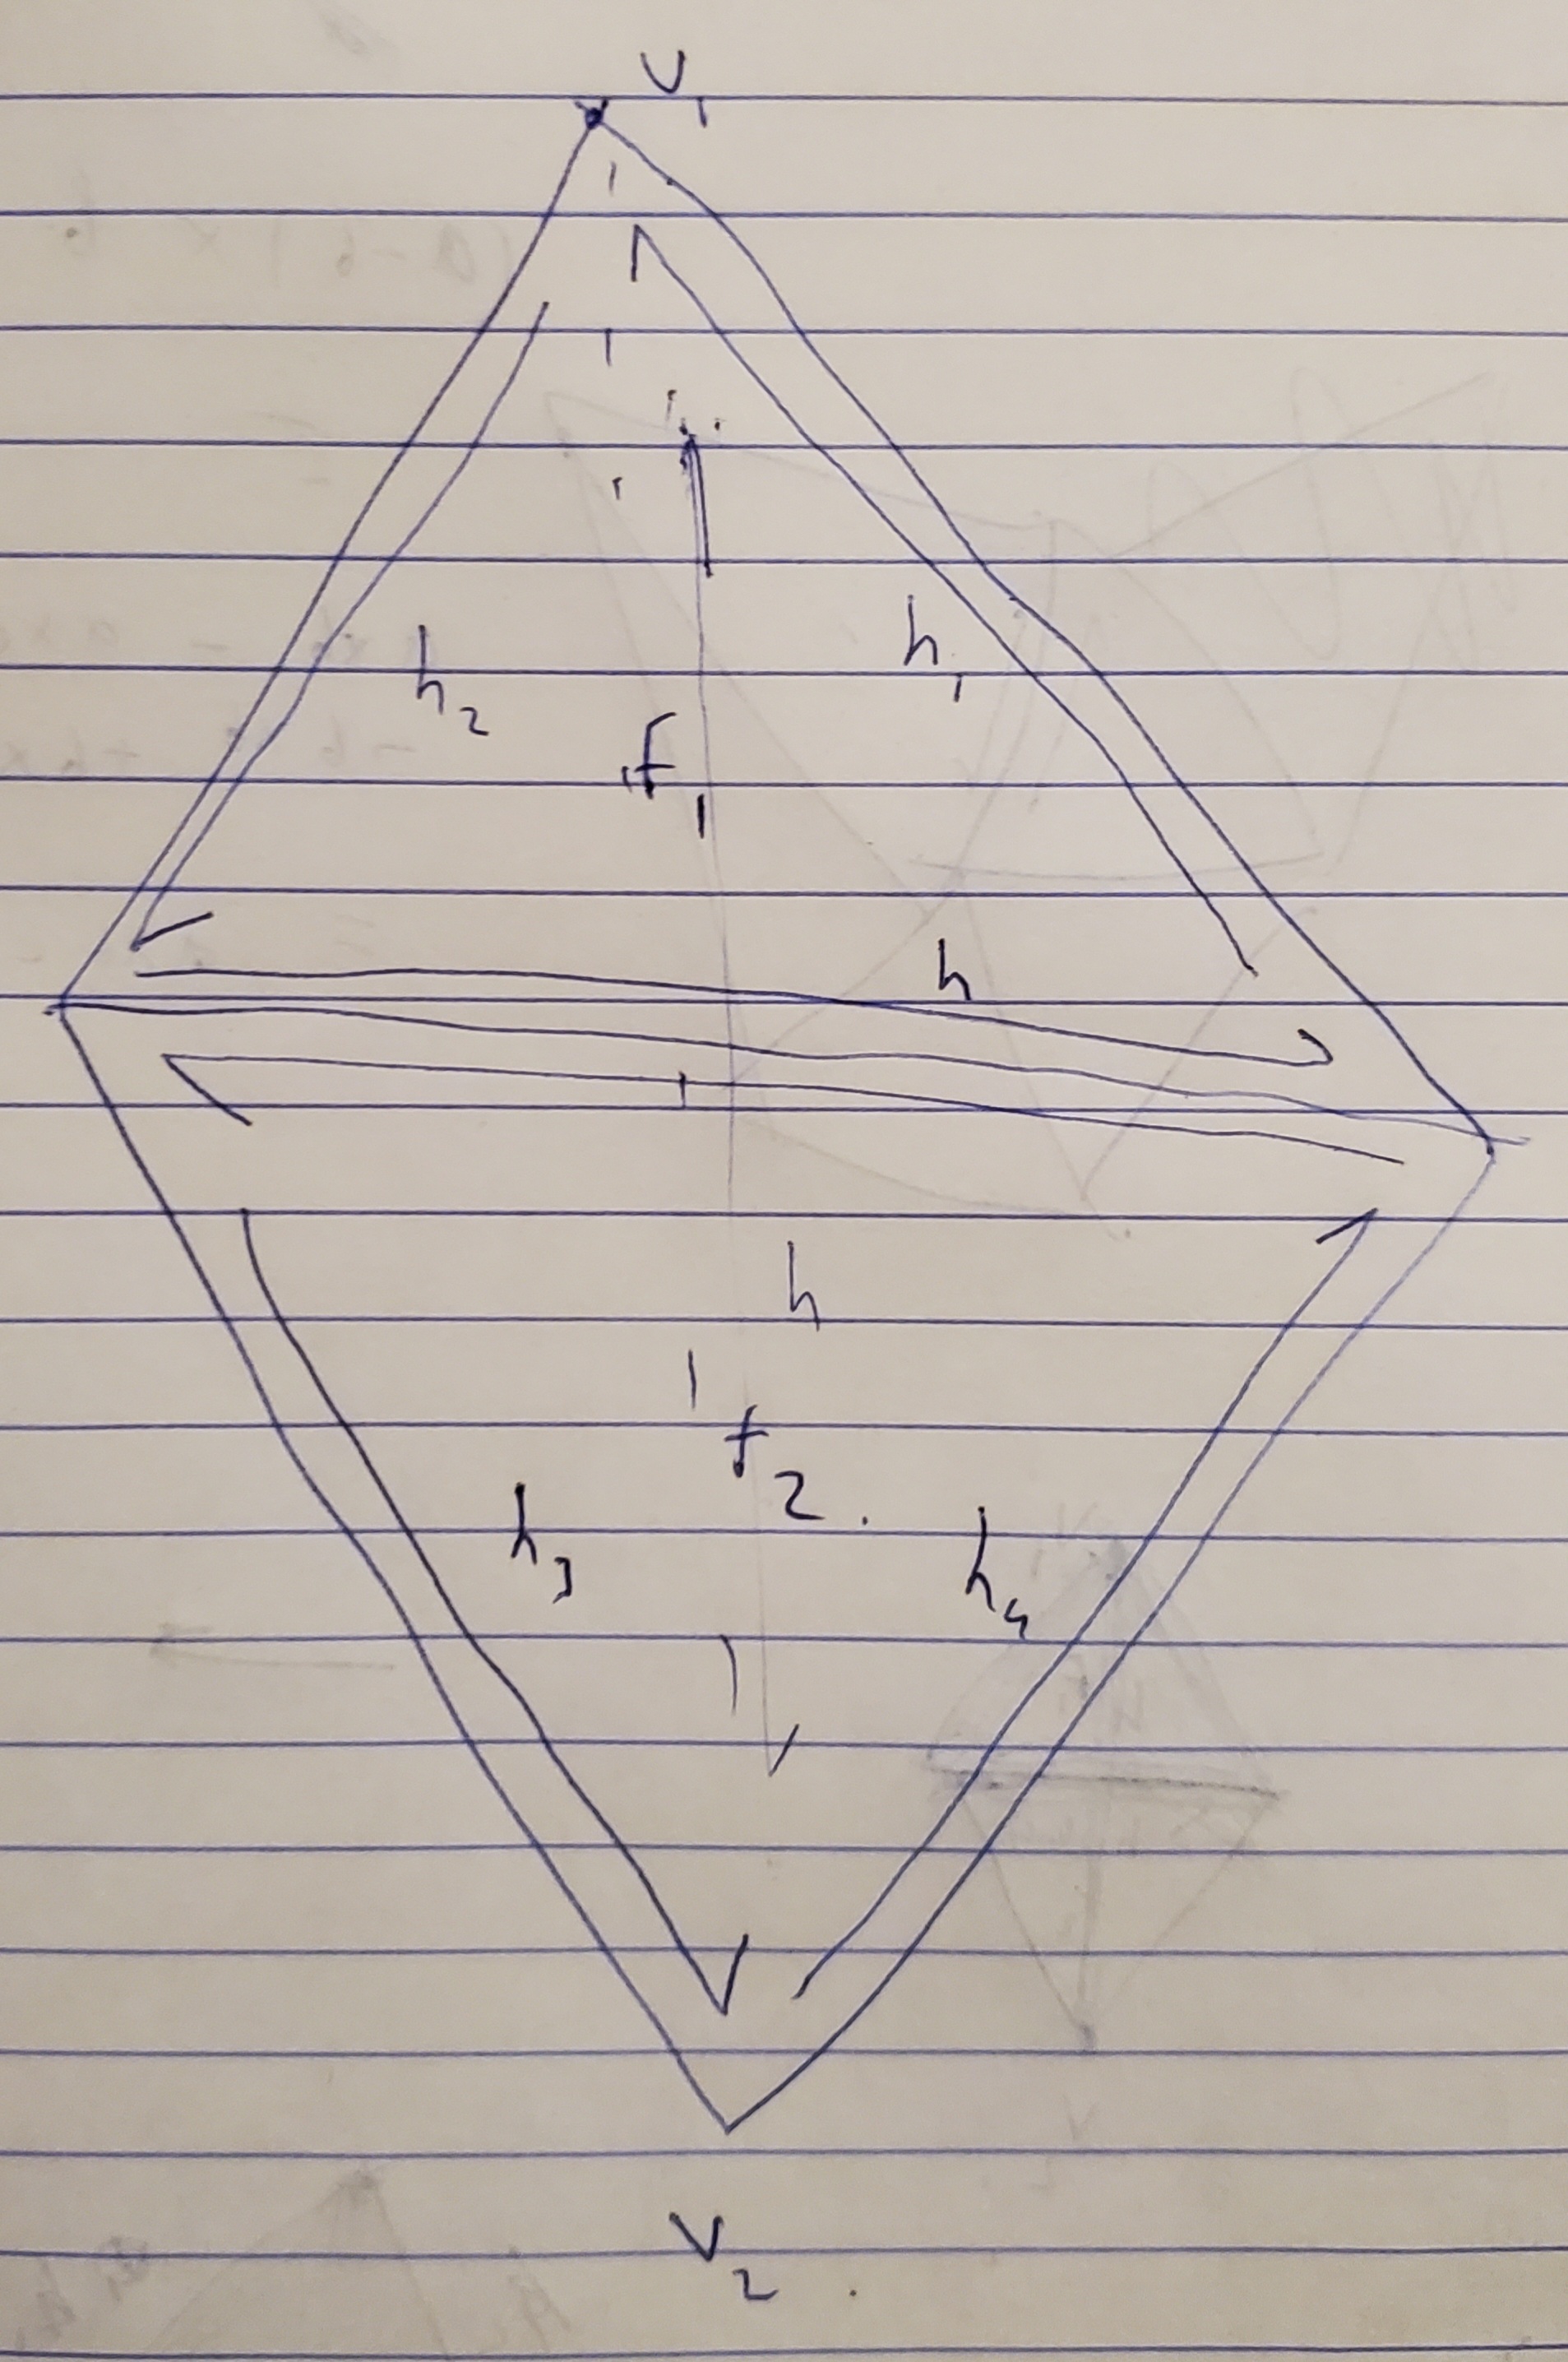 v₁
h₁
h₂
f₁
h
h
f₂
h₃
h₄
v₂